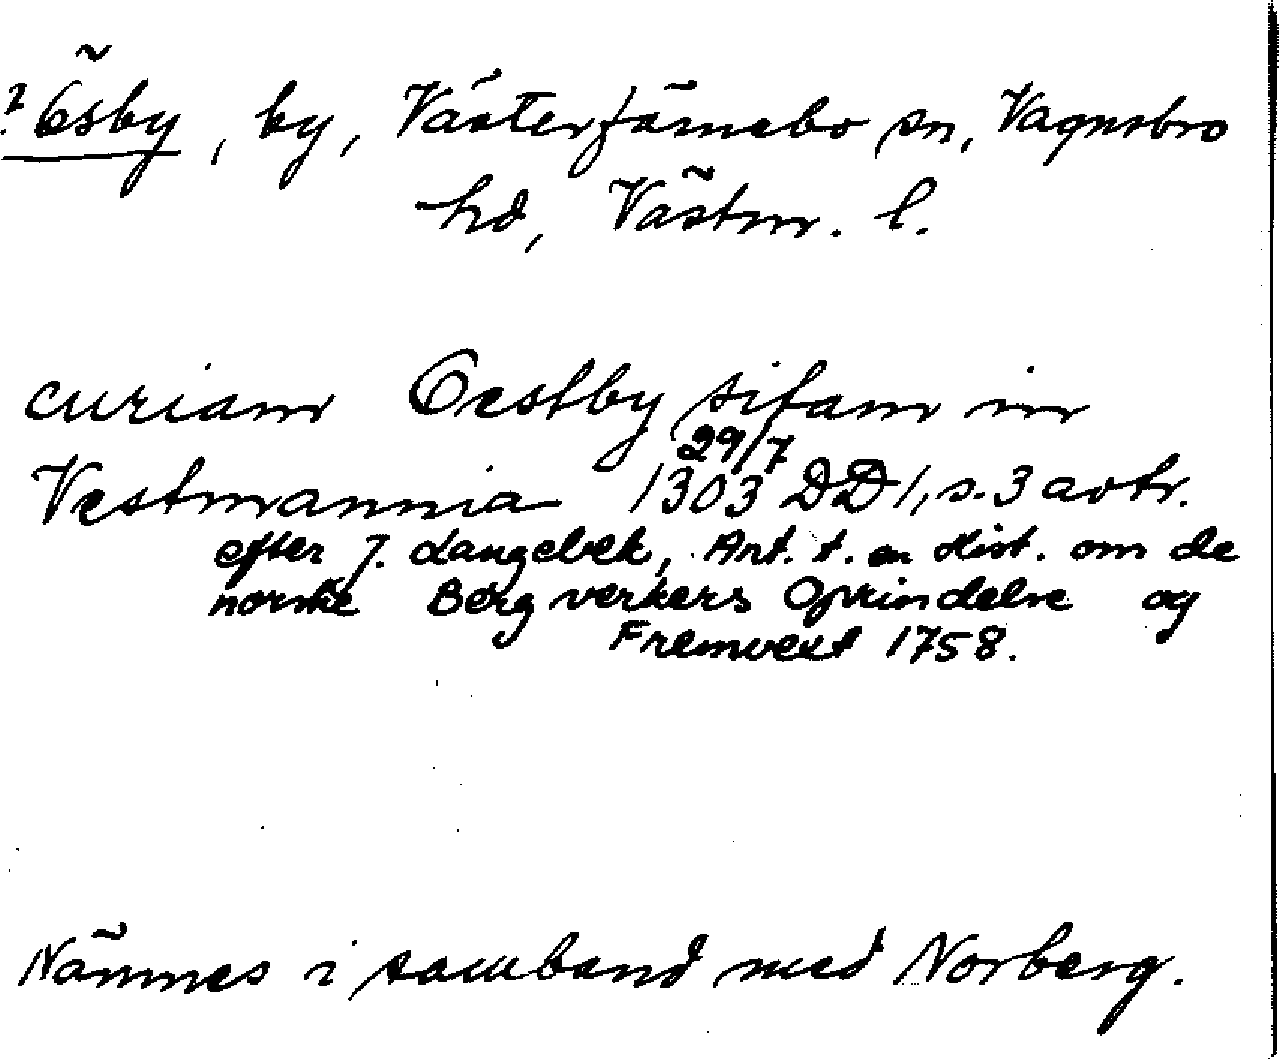 ? Ösby, by, Västerfärnebo sn, Vagnsbro
hd, Västm. l.
curiam Oestby sitam in
Vestmannia 29/7 1303 DD 1, s. 3 avtr.
efter J. Langebek, Ant. t. en Hist. om de
norske Bergverkers Oprindelse og
Fremvext 1758.
Nämnes i samband med Norberg.